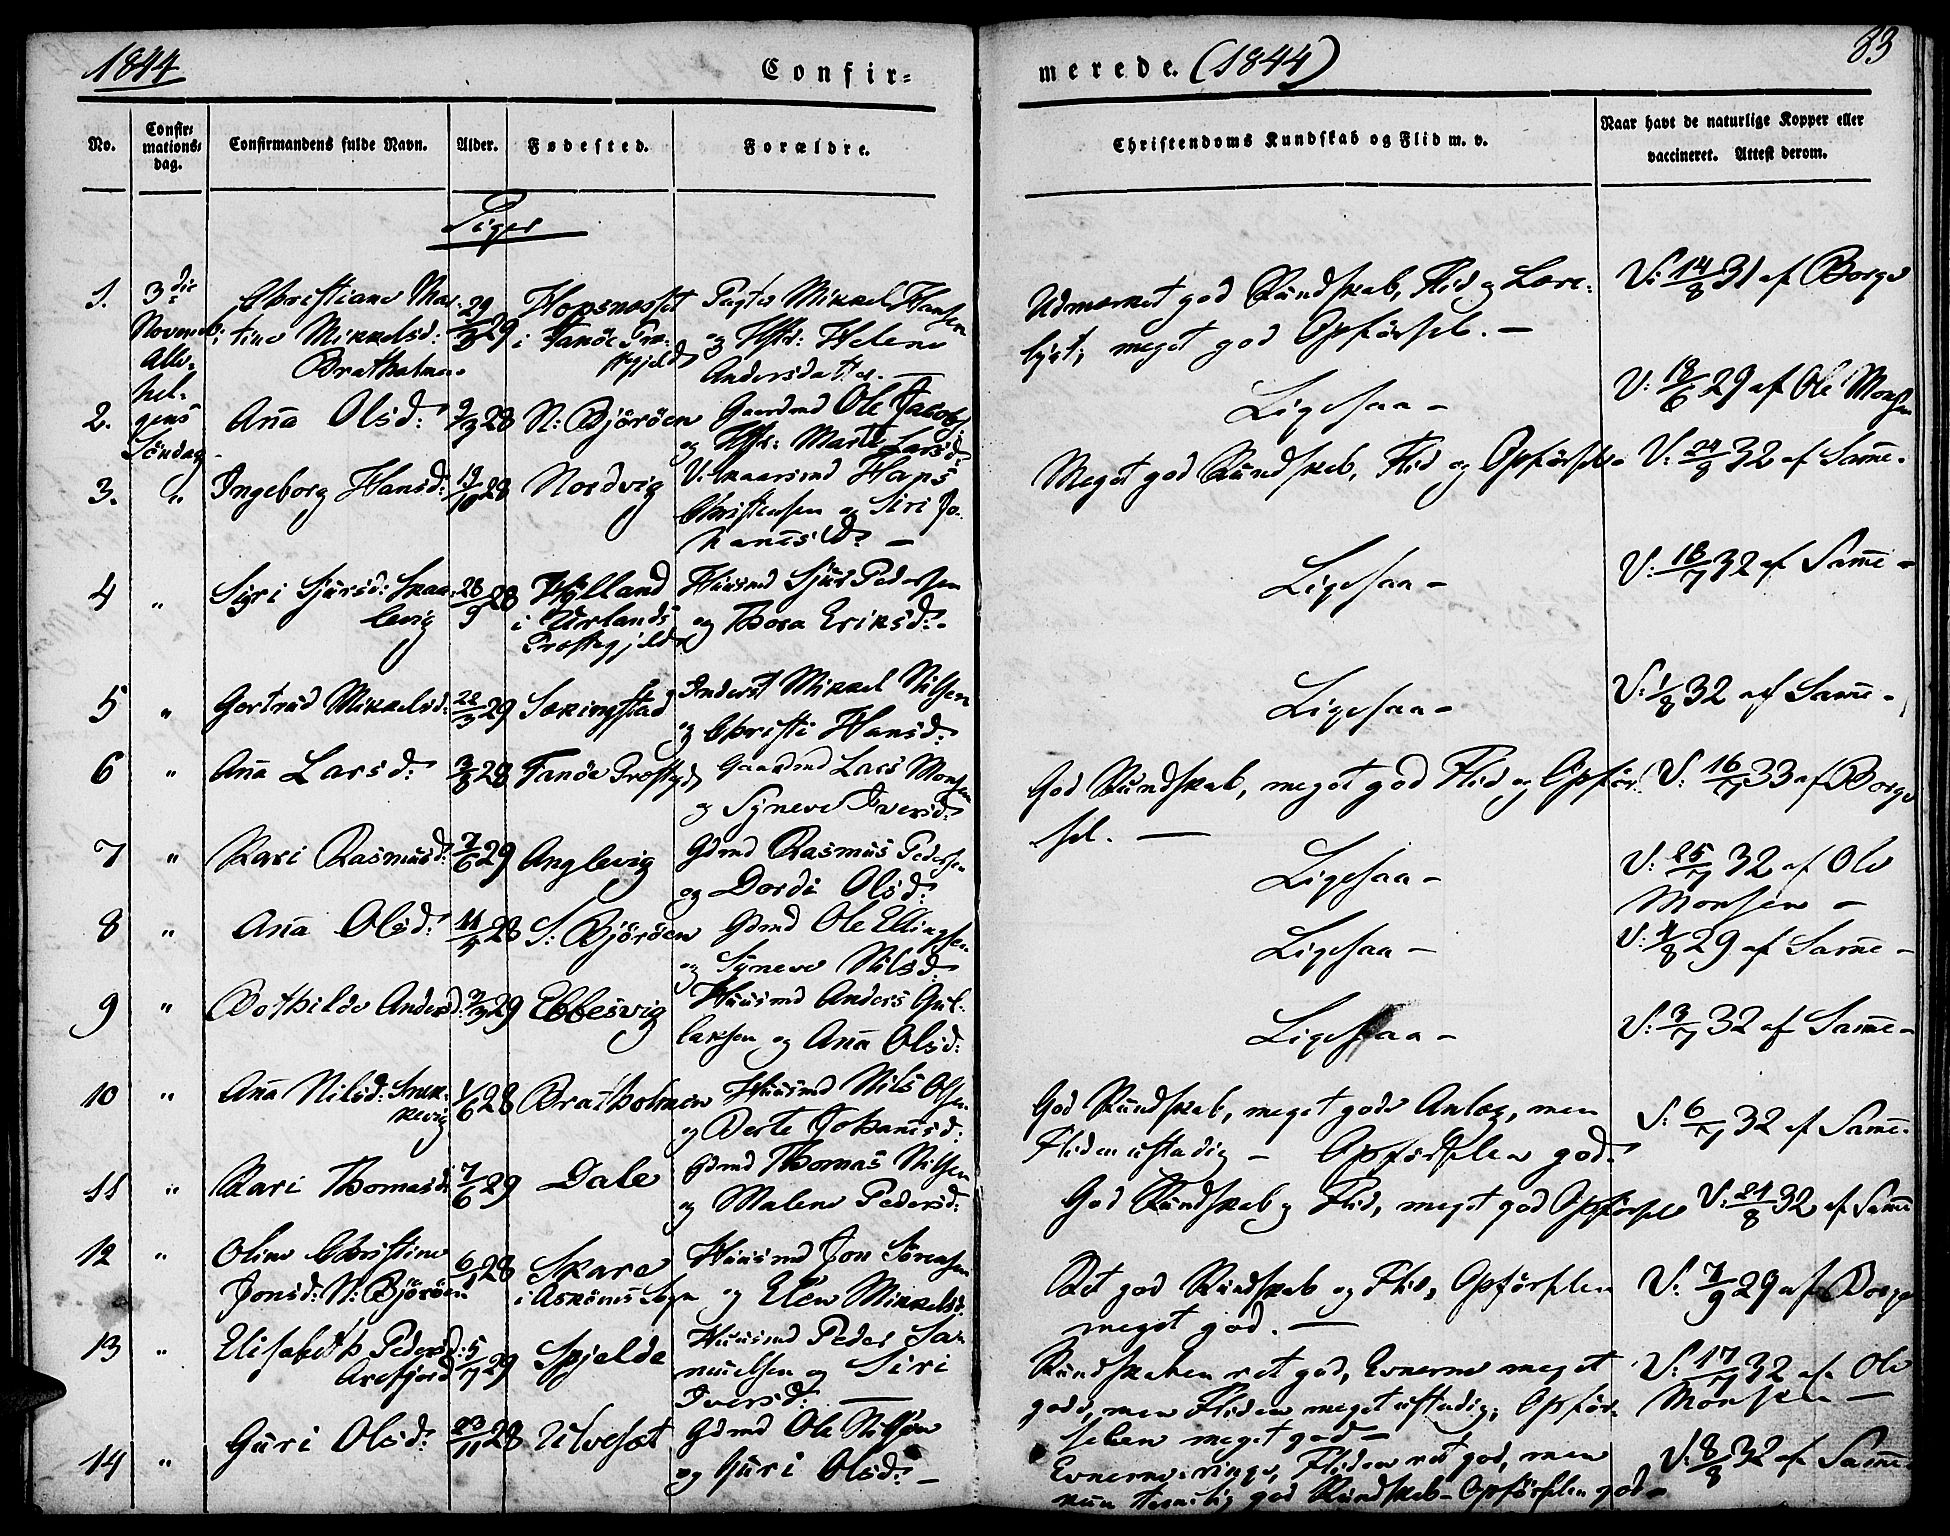 1844
Confir-
merede. (1844)
83
No.
Confir-
mations-
dag.
Confirmandens fulde Navn.
Alder.
Fødested.
Forældre.
Christendoms Kundskab og Flid m. v.
Naar havt de naturlige Kopper eller
vaccineret. Attest derom.
Piger
1.
3die
Novemb:
Alle-
hel-
gens
Söndag
Christiane Mar-
tine Mikkelsd:
Bratholmen
29
29
Hopsnæsset
i Fanöe Præ-
stegjeld
Mikkel Hansen
og Hstr: Helene
Andersdatter. —
Udmærket god Kundskab, Flid og Lære-
lyst; meget god Opförsel. —
V: 14/8 31 af Borge
2.
Aña Olsd:
9/3 28
N: Björöen
Gaardmd Ole Jacobs:
og Hstr: Marte Larsd:
Ligesaa —
V: 18/6 29 af Ole Monsen
3.
"
Ingeborg Hansd:
19/10 28
Nordvig
Hans
Christensen og Siri Jo-
hañesd: —
Meget god Kundskab, Flid og Opförsel
V: 24/8 32 af Sam̄e.
4
"
Siri Sjursd: Skaa-
levig
28/9 28
Hylland
i Urlands
Præstegjeld
Huusmd Sjur Pedersen
og Thora Eriksd:
Ligesaa —
V: 18/7 32 af Sam̄e —
5
"
Gertrud Mikkelsd:
22/3 29
Sækingstad
Inderst Mikkel Nilsen
og Christi Hansd:
Ligesaa —
V: 1/8 32 af Sam̄e —
6
"
Aña Larsd:
3/8 28
Fanöe Præstegjd
Gaardmd Lars Monsen
og Syneve Iversd:
God Kundskab, meget god Flid og Opför-
sel. —
V: 16/7 33 af Borge
7
"
Kari Rasmusd:
7/6 29
Anglevig
Gdmd Rasmus Pedersen
og Dordi Olsd:
Ligesaa —
V: 25/7 32 af Ole
Monsen —
8
"
Aña Olsd:
11/4 28
S: Björöen
Gdmd Ole Ellingsen
og Syneve Nilsd:
Ligesaa —
29 af Sam̄e —
9
"
Bothilde Andersd:
2/3 29
Ebbesvig
Huusmd Anders Gul-
laksen og Aña Olsd:
Ligesaa —
V: 3/7 32 af Sam̄e —
10
"
Aña Nilsd: Snek-
kevig
1/6 28
Bratholmen
Huusmd Nils Olsen
og Berte Johañesd:
God Kundskab, meget gode Anlæg, men
Fliden ustadig — Opförslen god.
V: 6/7 32 af Sam̄e.
11
"
Kari Thomasd:
7/6 29
Dale
Gdmd Thomas Nilsen
og Malene Pedersd:
God Kundskab og Flid, meget god Opförsel
V: 24/8 32 af Sam̄e
12
"
Oline Christine
Jonsd: N: Björöen
6/1 28
Skare
i Askönes Sogn
Huusmd Jon Sörensen
og Elen Mikkelsd:
Ret god Kundskab og Flid, Opförslen
meget god. —
V: 7/9 29 af Borge
13
"
Elisabeth Pedersd:
Arefjord
5/7 29
Spjelde
Huusmd Peder Sa-
muelsen og Siri
Iversd: —
Kundskaben ret god, Evnerne meget
gode, men Fliden meget ustadig; Opför-
selen meget god —
V: 17/7 32 af Ole
Monsen —
14
"
Guri Olsd:
23/11 28
Ulveset
Gdmd Ole Nilsen
og Guri Olsd: —
Evnerne ringe, Fliden ret god, men
kun temelig god Kundskab — Opförslen god —
V: 8/8 32 af Sam̄e